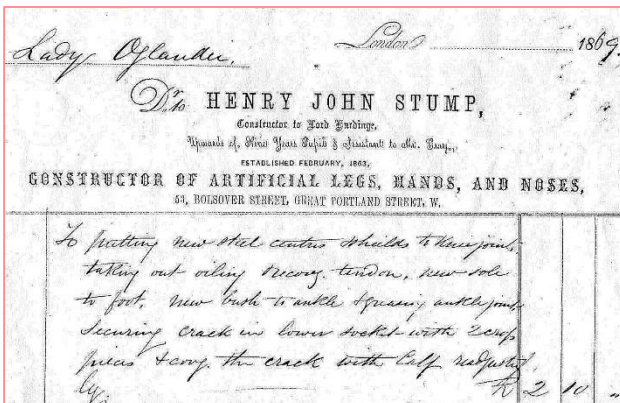 Lady Oglander.
London 1869.
Dr. to HENRY JOHN STUMP,
Constructor to Lord Hardinge,
Upwards of Nine Years Pupil & Assistant to Mr. Gray,
ESTABLISHED FEBRUARY, 1863,
CONSTRUCTOR OF ARTIFICIAL LEGS, HANDS, AND NOSES,
BOLSOVER STREET, GREAT PORTLAND STREET, W.
To putting new steel centres & shields to Knee joint,
taking out oiling & recovg. tendon, new sole
to foot, new bush to ankle & greasing ankle joint
Securing crack in lower socket with 2 cross
pieces & covg. the crack with Calf readjustg
2 10 "